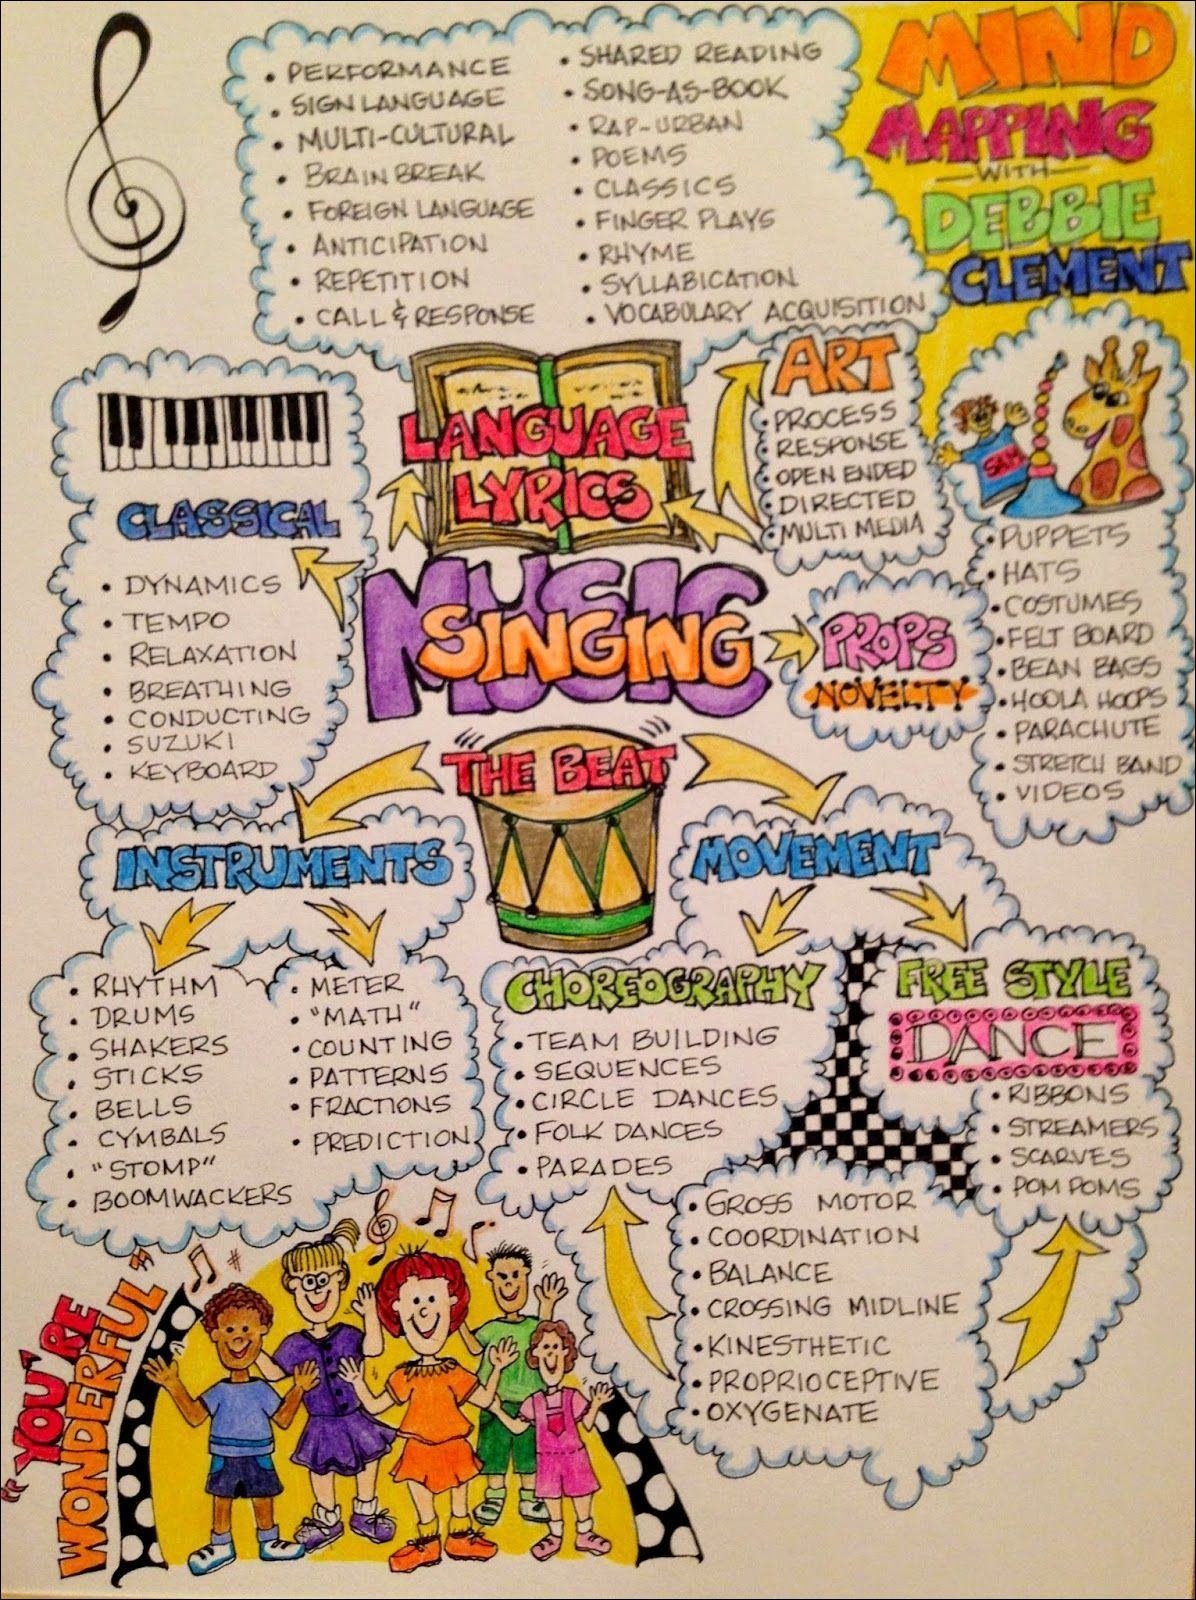 MIND
MAPPING
WITH
DEBBIE
CLEMENT
• PERFORMANCE
• SIGN LANGUAGE
• MULTI-CULTURAL
• BRAIN BREAK
• FOREIGN LANGUAGE
• ANTICIPATION
• REPETITION
• CALL & RESPONSE
• SHARED READING
• SONG-AS-BOOK
• RAP-URBAN
• POEMS
• CLASSICS
• FINGER PLAYS
• RHYME
• SYLLABICATION
• VOCABULARY ACQUISITION
LANGUAGE
LYRICS
ART
• PROCESS
• RESPONSE
• OPEN ENDED
• DIRECTED
• MULTI MEDIA
SAM
• PUPPETS
• HATS
• COSTUMES
• FELT BOARD
• BEAN BAGS
• HOOLA HOOPS
• PARACHUTE
• STRETCH BAND
• VIDEOS
CLASSICAL
• DYNAMICS
• TEMPO
• RELAXATION
• BREATHING
• CONDUCTING
• SUZUKI
• KEYBOARD
MUSIC
SINGING
PROPS
NOVELTY
THE BEAT
INSTRUMENTS
• RHYTHM
• DRUMS
• SHAKERS
• STICKS
• BELLS
• CYMBALS
• "STOMP"
• BOOMWACKERS
• METER
• "MATH"
• COUNTING
• PATTERNS
• FRACTIONS
• PREDICTION
MOVEMENT
CHOREOGRAPHY
• TEAM BUILDING
• SEQUENCES
• CIRCLE DANCES
• FOLK DANCES
• PARADES
FREE STYLE
DANCE
• RIBBONS
• STREAMERS
• SCARVES
• POM POMS
• GROSS MOTOR
• COORDINATION
• BALANCE
• CROSSING MIDLINE
• KINESTHETIC
• PROPRIOCEPTIVE
• OXYGENATE
"YOU'RE
WONDERFUL"